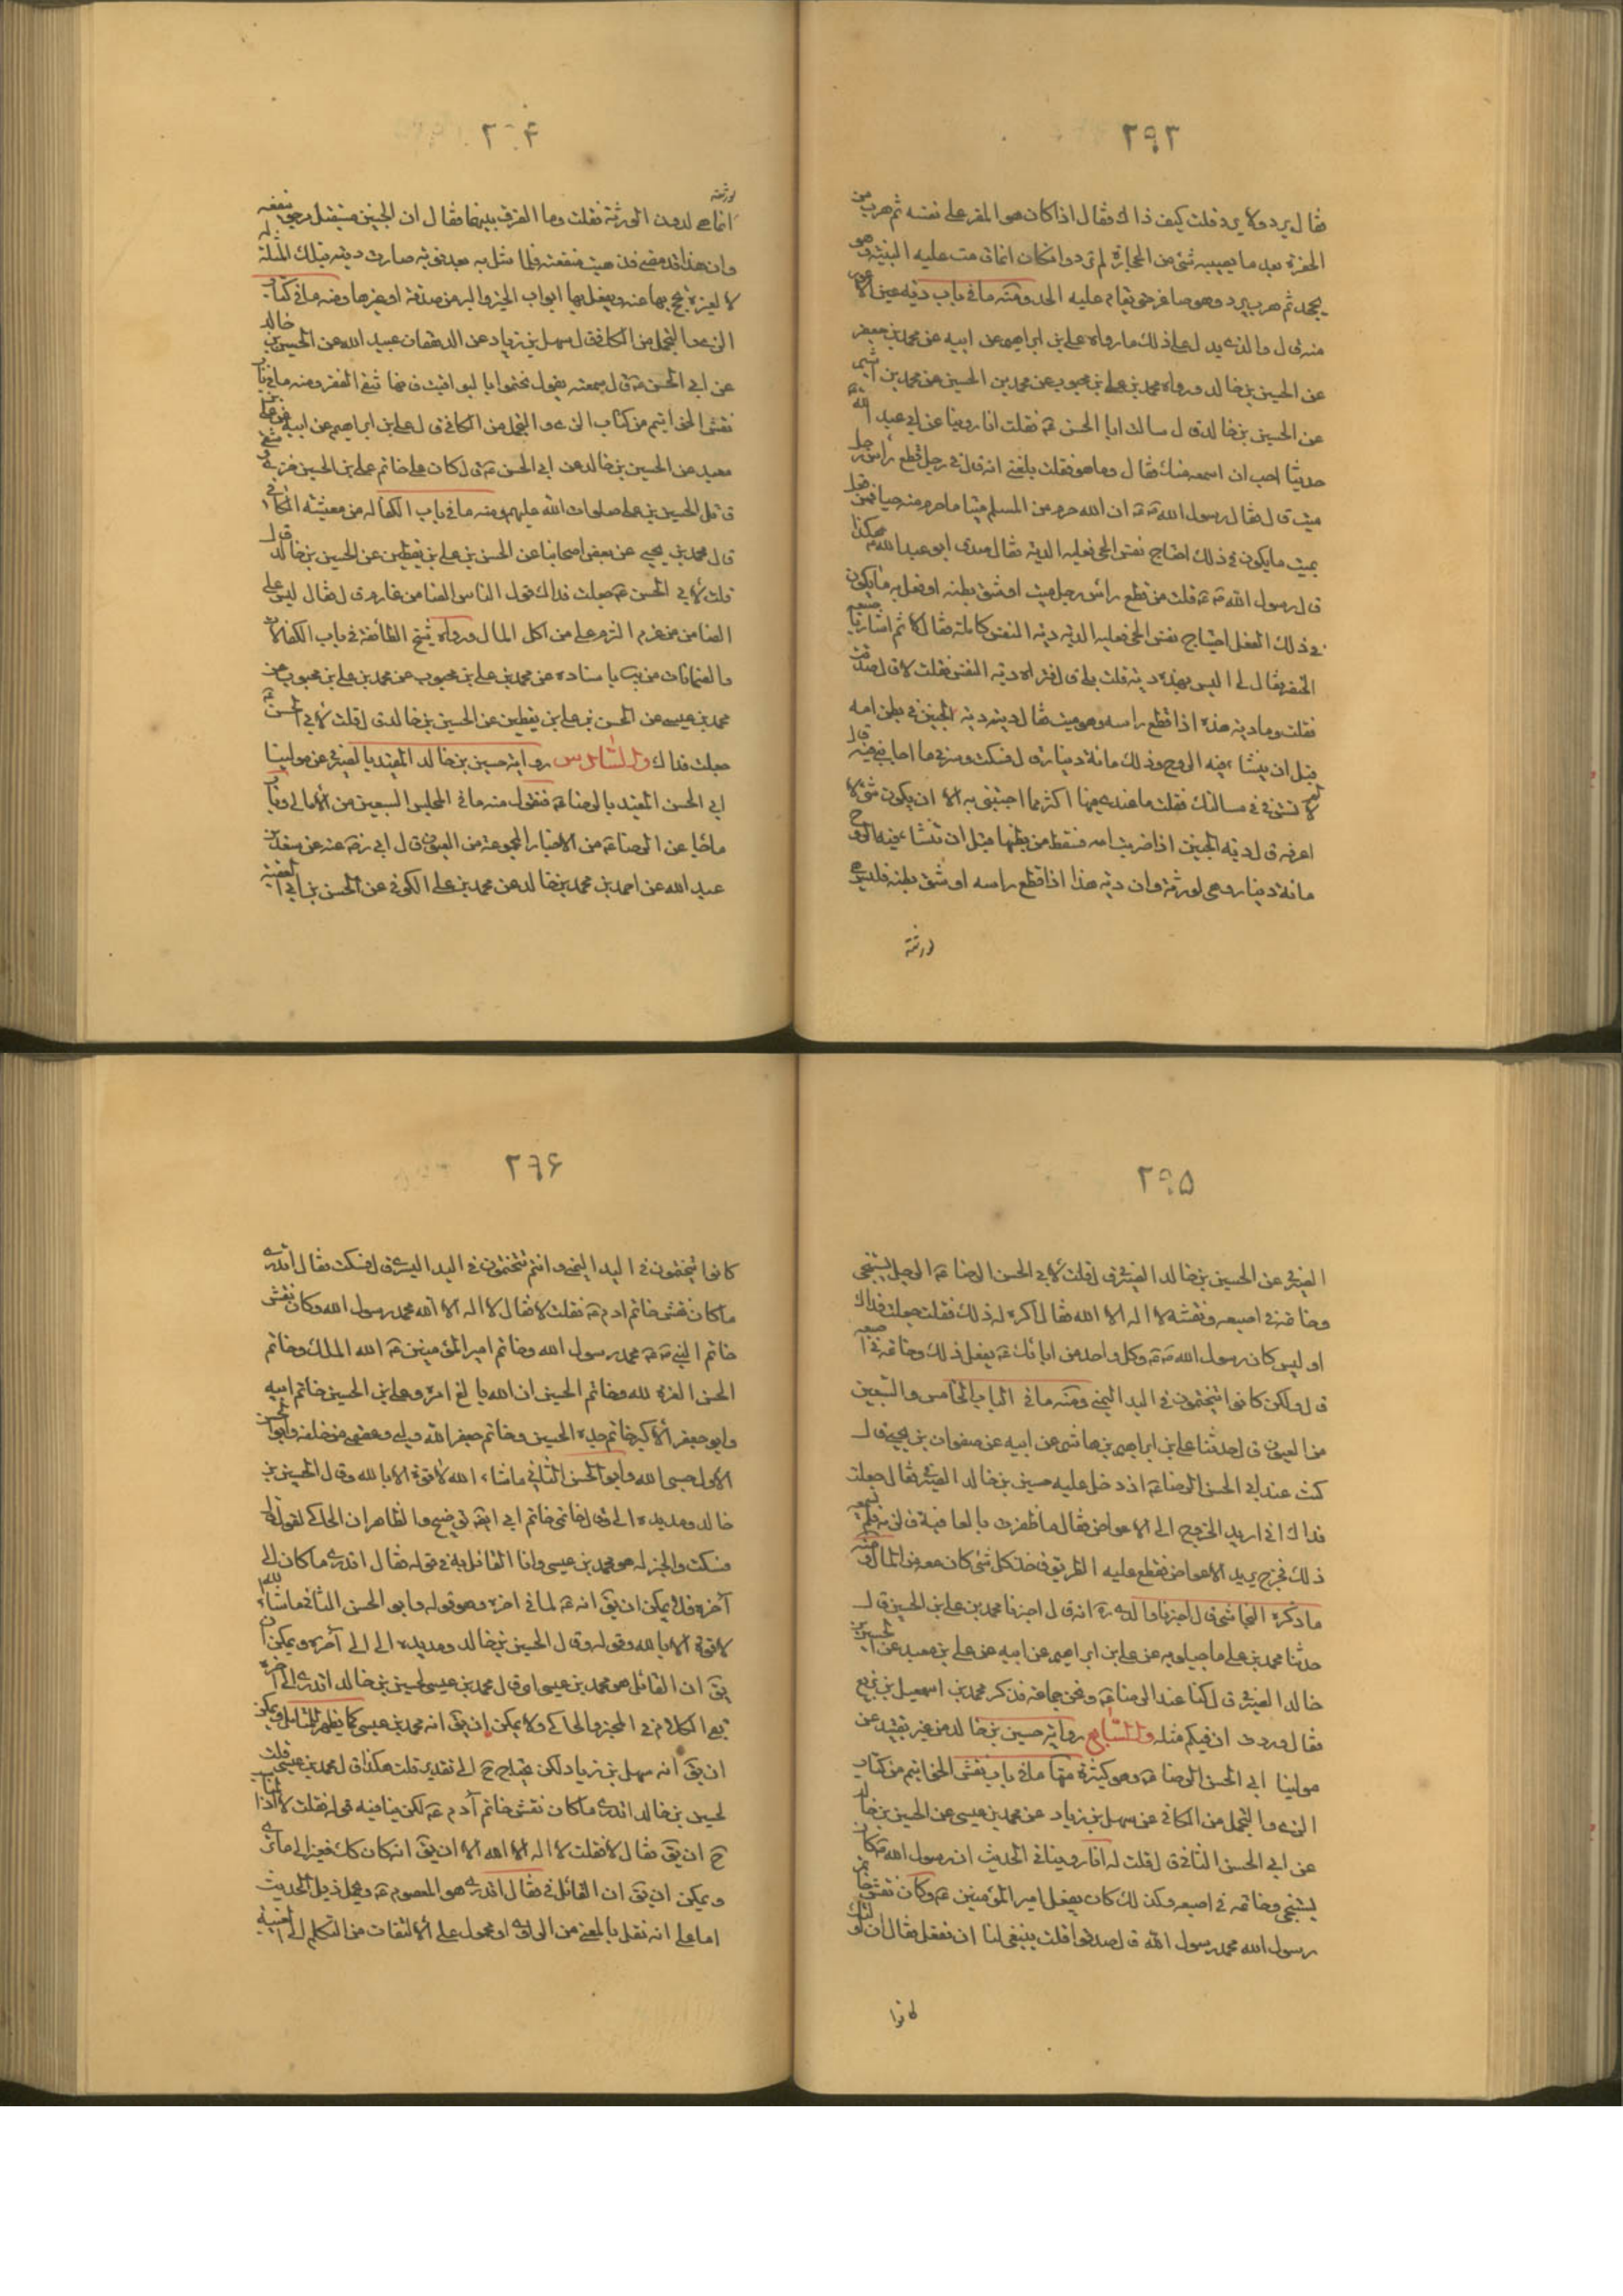 ٢٩٣
فقال يرد ولا يرد قلت كيف ذاك فقال اذا كان هو المقر على نفسه ثم هرب من
الحفرة بعد ما يصيبه شئ من الحجارة لم يرد وان كان انما قامت عليه البينة وهو
يجحد ثم هرب يرد وهو صاغر حتى يقام عليه الحد ومنه ما في باب دية عين الاعور
منه قال والذي يدل على ذلك ما رواه علي بن ابراهيم عن ابيه عن محمد بن جعفر
عن الحسين بن خالد ورواه محمد بن علي بن محبوب عن محمد بن الحسين عن محمد بن اشيم
عن الحسين بن خالد قال سالت ابا الحسن ع فقلت انا روينا عن ابي عبد الله ع
حديثا احب ان اسمعه منك فقال وما هو فقلت بلغني انه قال في رجل قطع رأس رجل
ميت قال فقال رسول الله ص ان الله حرم من المسلم ميتا ما حرم منه حيا فمن فعل
بميت ما يكون في ذلك اجتياح نفس الحي فعليه الدية فقال صدق ابو عبد الله ع هكذا
قال رسول الله ص قلت من قطع رأس رجل ميت او شق بطنه او فعل به ما يكون
في ذلك الفعل اجتياح نفس الحي فعليه الدية دية النفس كاملة فقال لا ثم اشار باصبعه
الخنصر فقال لي اليس بهذه دية قلت بلى قال فتراه دية النفس فقلت لا قال صدقت
فقلت وما دية هذه اذا قطع راسه وهو ميت فقال ديته دية الجنين في بطن امه
قبل ان ينشأ فيه الروح وذلك مائة دينار قال فسكت وسرني ما اجابني فيه قال
لم لا تستوفي مسالتك فقلت ما عندي فيها اكثر مما اجبتني به الا ان يكون شئ لا
اعرفه قال دية الجنين اذا ضربت امه فسقط من بطنها قبل ان تنشأ فيه الروح
مائة دينار وهي لورثته وان دية هذا اذا قطع راسه او شق بطنه فليس هي
لورثته
٢٩٤
لورثته
انما هي له دون الورثة فقلت وما الفرق بينهما فقال ان الجنين مستقبل مرجو نفعه
وان هذا قد مضى فذهبت منفعته فلما مثل به بعد موته صارت ديته بتلك المثلة له
لا لغيره يحج بها عنه ويفعل بها ابواب الخير والبر من صدقة او غيرها ومنه ما في كتاب
الزي والتجمل من الكافي قال سهل بن زياد عن الدهقان عبيد الله عن الحسين بن خالد
عن ابي الحسن ع قال سمعته يقول تختموا باليواقيت فانها تنفي الفقر ومنه ما في باب
نقش الخواتيم من كتاب الزي والتجمل من الكافي قال علي بن ابراهيم عن ابيه عن علي بن
معبد عن الحسين بن خالد عن ابي الحسن ع قال كان على خاتم علي بن الحسين خزي وشقي
قاتل الحسين بن علي صلوات الله عليهم ومنه ما في باب الكفالة من معيشة الكافي
قال محمد بن يحيى عن بعض اصحابنا عن الحسن بن علي بن يقطين عن الحسين بن خالد قال
قلت لابي الحسن ع جعلت فداك قول الناس الضامن غارم قال فقال ليس على
الضامن من غرم الغرم على من اكل المال ورواه شيخ الطائفة في باب الكفالات
والضمانات من يب باسناده عن محمد بن علي بن محبوب عن محمد بن علي بن محبوب عن
محمد بن عيسى عن الحسن بن علي بن يقطين عن الحسين بن خالد قال قلت لابي الحسن ع
جعلت فداك والسادس رواية حسين بن خالد المقيد بالصيرفي عن مولينا
ابي الحسن المقيد بالرضا ع فنقول منه ما في المجلس السبعين من الامالي وباب
ما جاء عن الرضا ع من الاخبار المجموعة من العيون قال ابي رض عنه عن سعد بن
عبد الله عن احمد بن محمد بن خالد عن محمد بن علي الكوفي عن الحسن بن ابي العقبة
٢٩۵
الصيرفي عن الحسين بن خالد الصيرفي قال قلت لابي الحسن الرضا ع الرجل يستنجي
وخاتمه في اصبعه ونقشه لا اله الا الله فقال اكره له ذلك فقلت جعلت فداك
او ليس كان رسول الله ص وكل واحد من ابائك ع يفعل ذلك وخاتمه في اصبعه
قال ولكن كانوا يتختمون في اليد اليمنى ومنه ما في الباب الخامس والتسعين
من العيون قال حدثنا علي بن ابراهيم بن هاشم عن ابيه عن صفوان بن يحيى قال
كنت عند ابي الحسن الرضا ع اذ دخل عليه حسين بن خالد الصيرفي فقال جعلت
فداك اني اريد الخروج الى الاعواض فقال ما ظفرت بالعافية فالزمه فلم يسمعه
ذلك فخرج يريد الاعواض فقطع عليه الطريق فاخذ كل شئ كان معه من المال ومنه
ما ذكره النجاشي قال اخبرنا والدي ره انه قال اخبرنا محمد بن علي بن الحسين قال
حدثنا محمد بن علي ماجيلويه عن علي بن ابراهيم عن ابيه عن علي بن معبد عن الحسين بن
خالد الصيرفي قال كنا عند الرضا ع ونحن جماعة فذكر محمد بن اسمعيل بن بزيع
فقال وددت ان فيكم مثله والسابع رواية حسين بن خالد من غير تقييد عن
مولينا ابي الحسن الرضا ع وهو كثيرة منها ما في باب نقش الخواتيم من كتاب
الزي والتجمل من الكافي عن سهل بن زياد عن محمد بن عيسى عن الحسين بن خالد
عن ابي الحسن الثاني قال قلت له انا روينا في الحديث ان رسول الله ص كان
يستنجي وخاتمه في اصبعه وكذلك كان يفعل امير المؤمنين ع وكان نقش خاتم
رسول الله محمد رسول الله قال صدقوا قلت ينبغي لنا ان نفعل فقال ان اولئك
كانوا
٢٩۶
كانوا يتختمون في اليد اليمنى وانتم تتختمون في اليد اليسرى قال فسكت فقال اتدري
ما كان نقش خاتم ادم ع فقلت لا فقال لا اله الا الله محمد رسول الله وكان نقش
خاتم النبي ص محمد رسول الله وخاتم امير المؤمنين ع الله الملك وخاتم
الحسن العزة لله وخاتم الحسين ان الله بالغ امره وعلي بن الحسين خاتم ابيه
وابو جعفر الاكبر خاتم جده الحسين وخاتم جعفر الله وليي وعصمتي من خلقه وابو الحسن
الاول حسبي الله وابو الحسن الثاني ما شاء الله لا قوة الا بالله وقال الحسين بن
خالد ومد يده الي وقال خاتمي خاتم ابي ايضا توضيح والظاهر ان الحاكي لقوله قال
فسكت والخبر له هو محمد بن عيسى واما القائل به في قوله فقال اتدري ما كان الى
آخره فلا يمكن ان يق انه ع لما في اخره وهو قوله وابو الحسن الثاني ما شاء الله
لا قوة الا بالله وقوله وقال الحسين بن خالد ومد يده الي الى آخره ويمكن ان
يق ان القائل هو محمد بن عيسى او قال محمد بن عيسى لحسين بن خالد اتدري الى آخره
الكلام في المخبر والحاكي ولا يمكن ان يق انه محمد بن عيسى كما يظهر للمتامل ويمكن
ان يق انه سهل بن زياد لكن يحتاج ح الى تقدير قلت هكذا قال محمد بن عيسى قلت
لحسين بن خالد اتدري ما كان نقش خاتم آدم ع لكن ينافيه قوله فقلت لا
ح ان يق فقال لا فقلت لا اله الا الله الا ان يق انه كان كك فغير الى ما ترى
ويمكن ان يق ان القائل في فقال اتدري هو المعصوم ع ويحمل ذيل الحديث
اما على انه نقل بالمعنى من الراوي او محمول على الالتفات من التكلم الى الغيبة